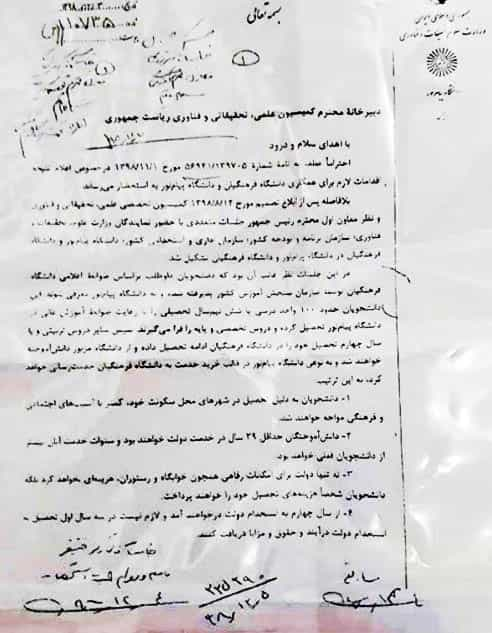 بسمه تعالی
جمهوری اسلامی ایران
وزارت علوم، تحقیقات و فناوری
دانشگاه پیام نور
۱
دبیرخانهٔ محترم کمیسیون علمی، تحقیقاتی و فناوری ریاست جمهوری
با اهدای سلام و درود
احتراماً عطف به نامهٔ شمارهٔ ۵۶۹۴۱/۱۳۹۷۰۵ مورخ ۱۳۹۸/۱۱/۱ درخصوص اعلام نتیجه
اقدامات لازم برای همکاری دانشگاه فرهنگیان و دانشگاه پیام‌نور به استحضار می‌رساند
بلافاصله پس از ابلاغ تصمیم مورخ ۱۳۹۸/۸/۱۲ کمیسیون تخصصی علمی، تحقیقاتی و فناوری
و نظر معاون اول محترم رئیس جمهور جلسات متعددی با حضور نمایندگان وزارت علوم، تحقیقات و
فناوری؛ سازمان برنامه و بودجه کشور؛ سازمان اداری و استخدامی کشور؛ دانشگاه پیام‌نور و دانشگاه
فرهنگیان در دانشگاه پیام‌نور و دانشگاه فرهنگیان تشکیل شد.
در این جلسات نظر غالب آن بود که دانشجویان داوطلب براساس ضوابط اعلامی دانشگاه
فرهنگیان توسط سازمان سنجش آموزش کشور پذیرفته شده و به دانشگاه پیام‌نور معرفی شوند. این
دانشجویان حدود ۱۰۰ واحد درسی یا شش نیم‌سال تحصیلی را با رعایت ضوابط آموزش عالی در
دانشگاه پیام‌نور تحصیل کرده و دروس تخصصی و پایه را فرا می‌گیرند. سپس سایر دروس تربیتی و یا
سال چهارم تحصیل خود را در دانشگاه فرهنگیان ادامه تحصیل داده و از دانشگاه مزبور دانش‌آموخته
خواهند شد و به نوعی دانشگاه پیام‌نور در قالب خرید خدمت به دانشگاه فرهنگیان خدمت‌رسانی خواهد
کرد؛ به این ترتیب:
۱- دانشجویان به دلیل تحصیل در شهرهای محل سکونت خود، کمتر با آسیب‌های اجتماعی
و فرهنگی مواجه خواهند شد.
۲- دانش‌آموختگان حداقل ۲۹ سال در خدمت دولت خواهند بود و سنوات خدمت آنان بیشتر
از دانشجویان فعلی خواهد بود.
۳- نه تنها دولت برای امکانات رفاهی همچون خوابگاه و رستوران، هزینه‌ای نخواهد کرد بلکه
دانشجویان شخصاً هزینه‌های تحصیل خود را خواهند پرداخت.
۴- از سال چهارم به استخدام دولت درخواهند آمد و لازم نیست در سه سال اول تحصیل به
استخدام دولت درآیند و حقوق و مزایا دریافت کنند.